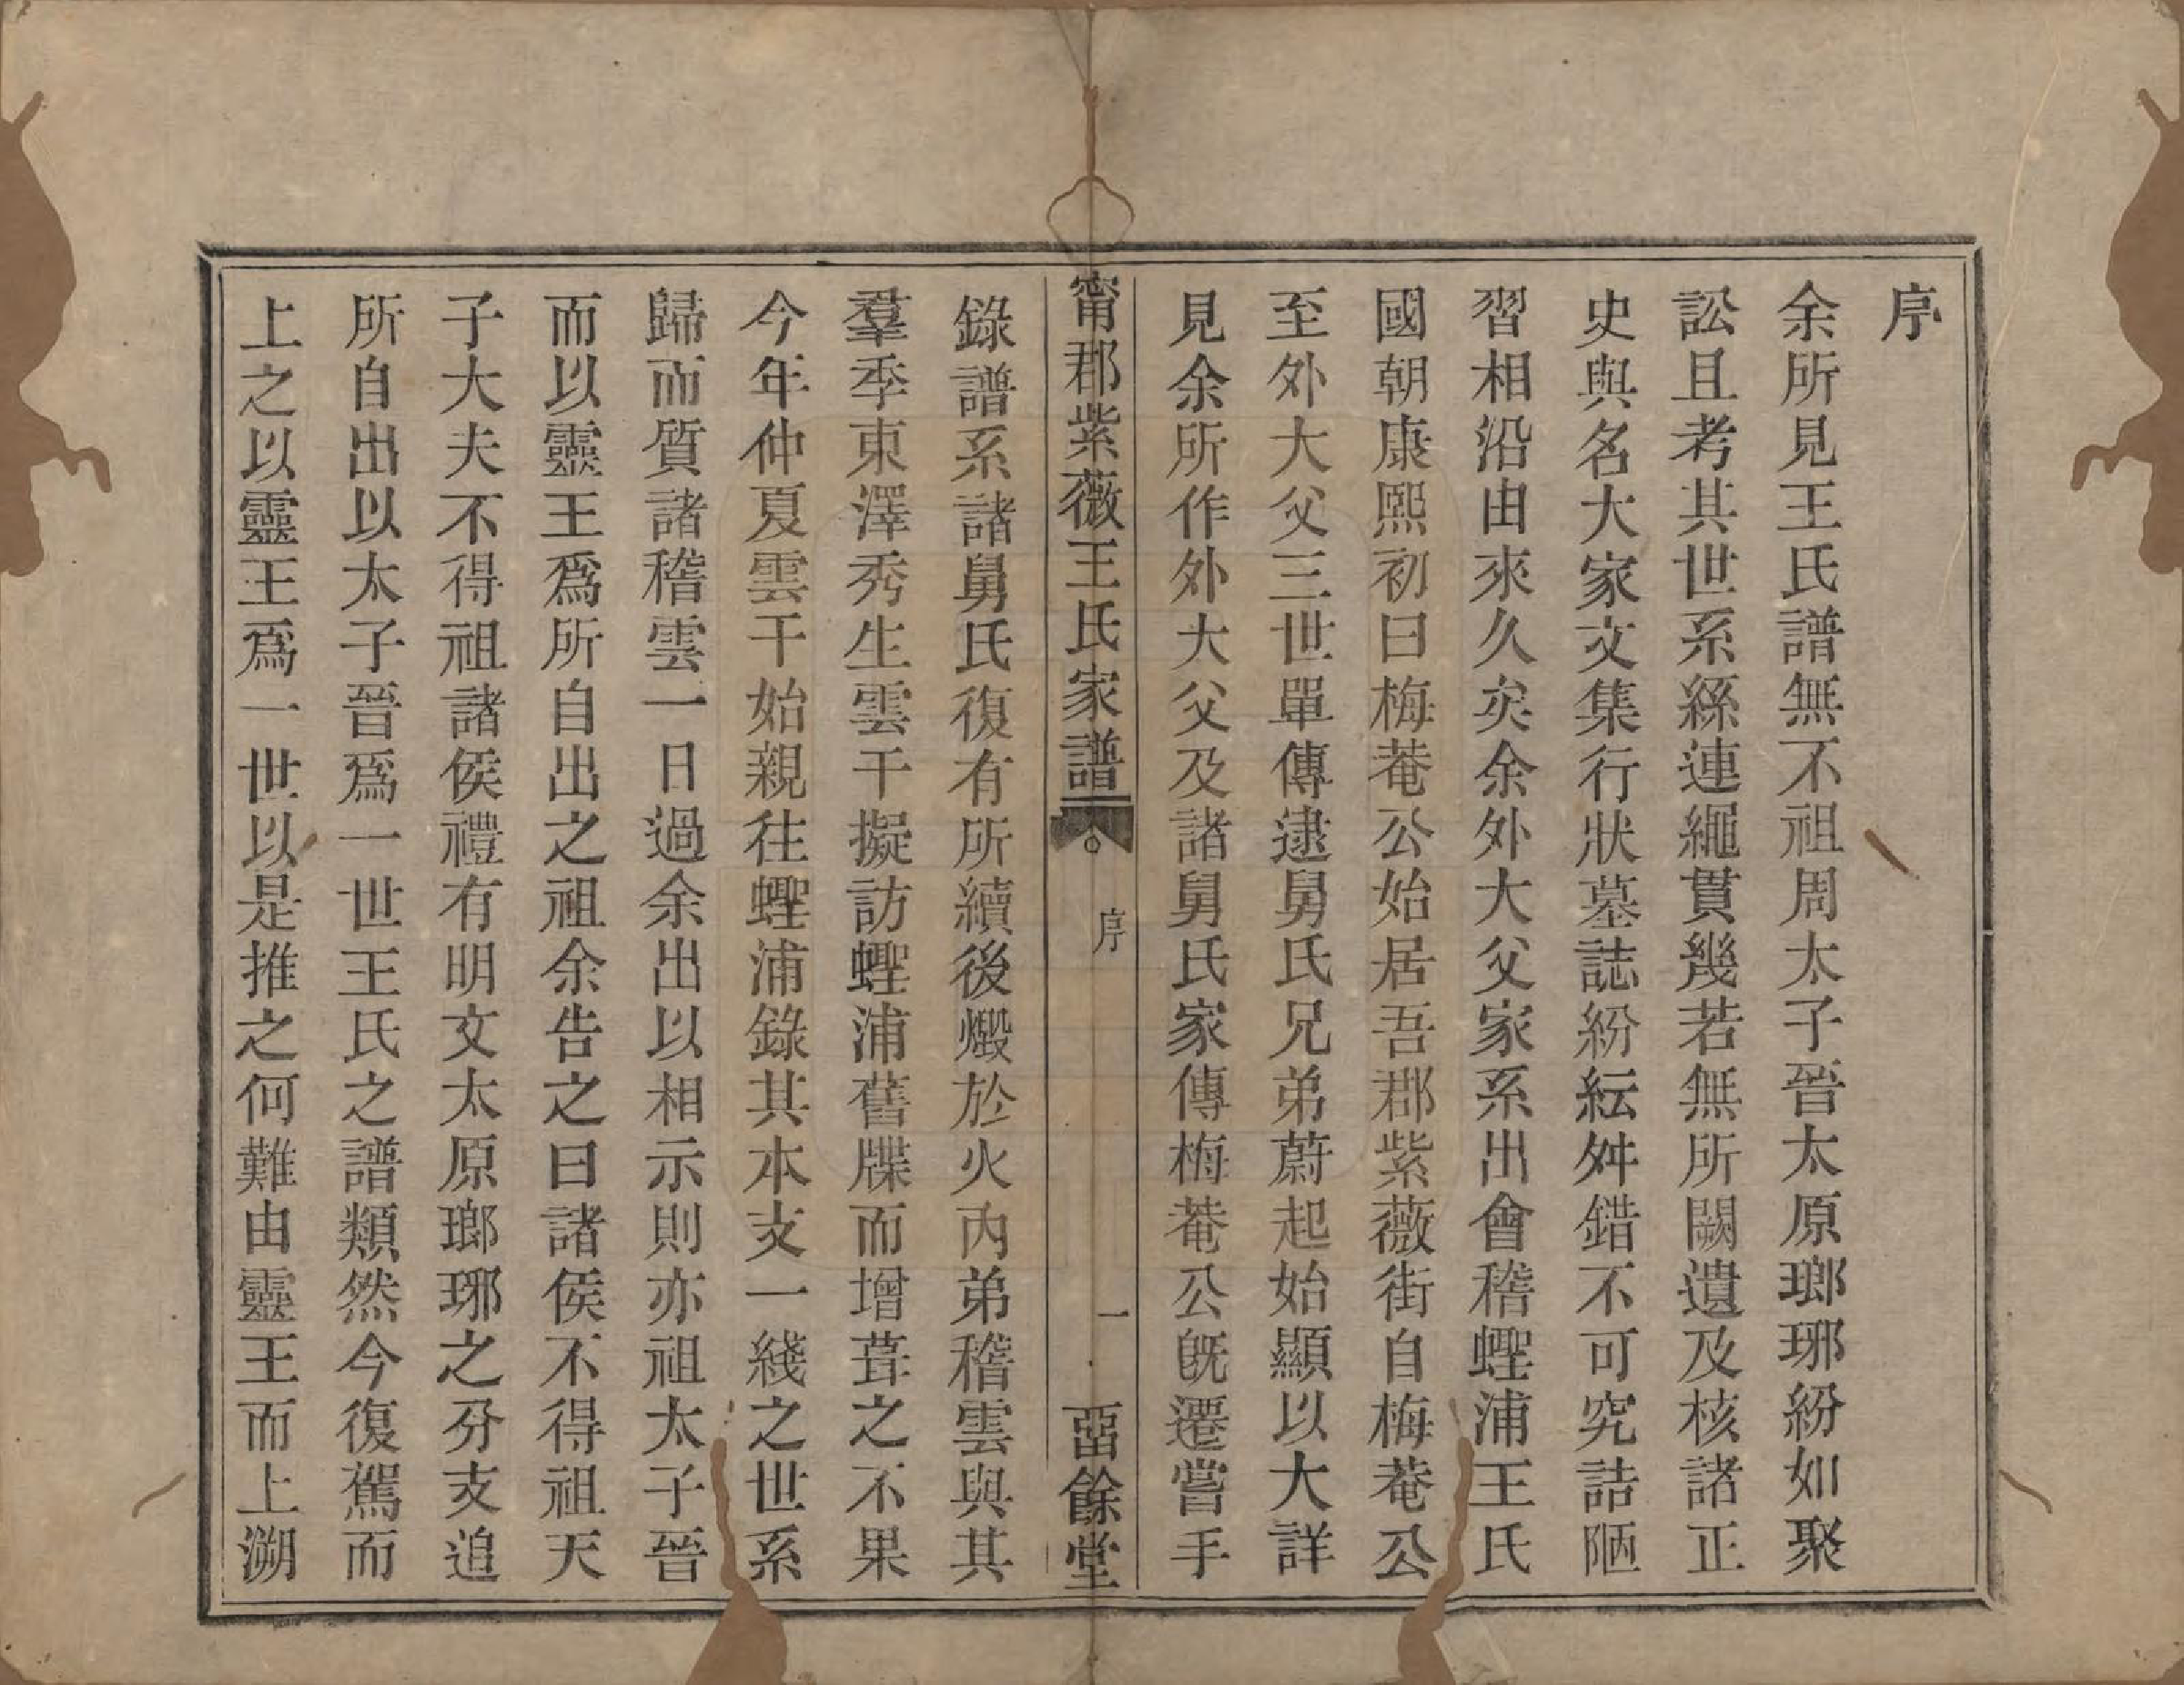 序
余所見王氏譜無不祖周太子晉太原瑯琊紛如聚
訟且考其世系絲連繩貫幾若無所闕遺及核諸正
史與名大家文集行狀墓誌紛紜舛錯不可究詰陋
習相沿由來久矣余外大父家系出會稽蟶浦王氏
國朝康熙初曰梅菴公始居吾郡紫薇街自梅菴公
至外大父三世單傳逮舅氏兄弟蔚起始顯以大詳
見余所作外大父及諸舅氏家傳梅菴公既遷嘗手
甯郡紫薇王氏家譜
序
一
畱餘堂
錄譜系諸舅氏復有所續後燬於火內弟稽雲與其
羣季東澤秀生雲干擬訪蟶浦舊牒而增葺之不果
今年仲夏雲干始親往蟶浦錄其本支一綫之世系
歸而質諸稽雲一日過余出以相示則亦祖太子晉
而以靈王爲所自出之祖余告之曰諸侯不得祖天
子大夫不得祖諸侯禮有明文太原瑯琊之分支追
所自出以太子晉爲一世王氏之譜類然今復駕而
上之以靈王爲一世以是推之何難由靈王而上溯